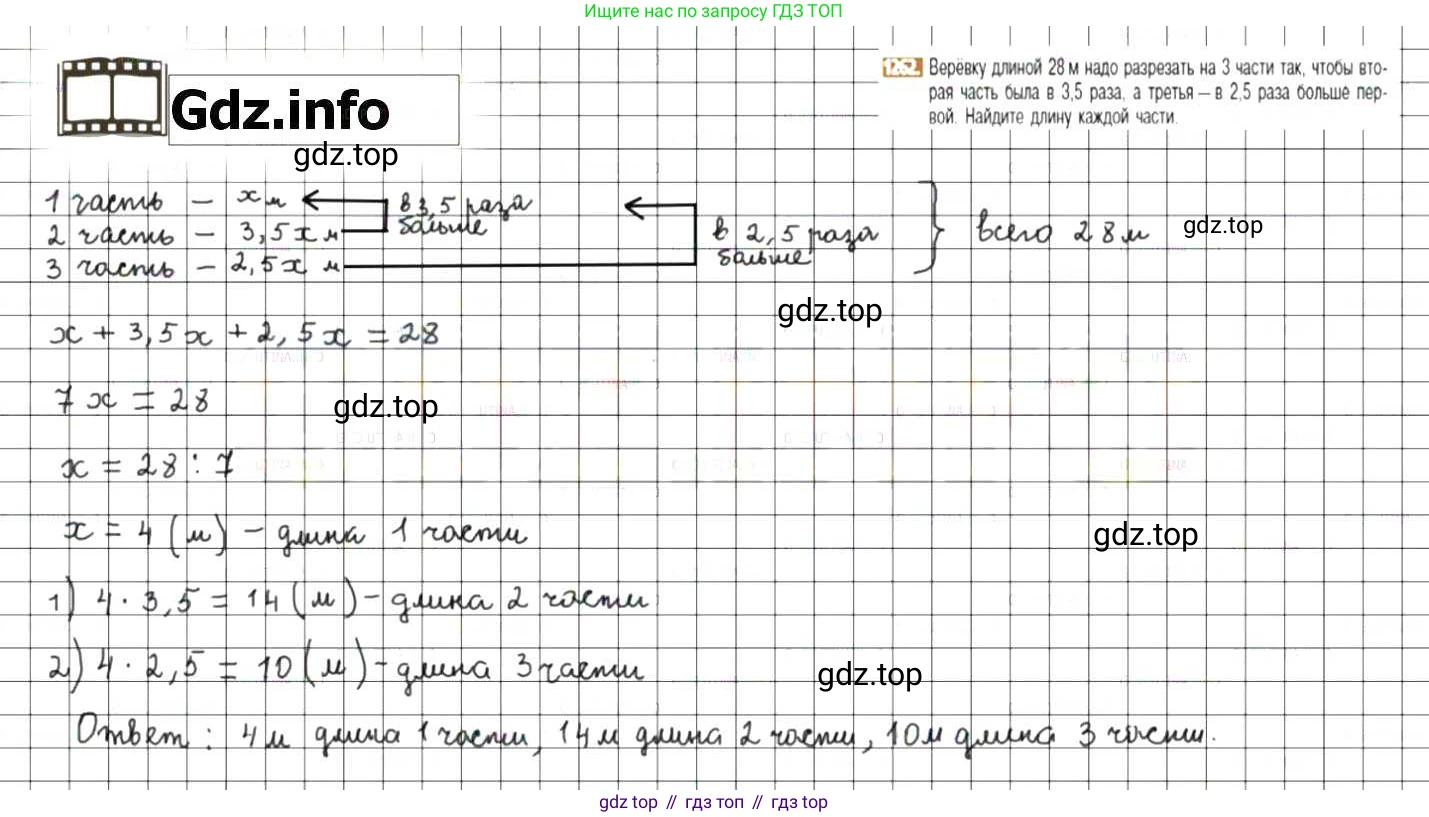 Ищите нас по запросу ГДЗ ТОП
Gdz.info
gdz.top
1262. Верёвку длиной 28 м надо разрезать на 3 части так, чтобы вто-
рая часть была в 3,5 раза, а третья — в 2,5 раза больше пер-
вой. Найдите длину каждой части.
1 часть – х м в 3,5 раза больше
2 часть – 3,5х м в 2,5 раза больше } всего 28 м gdz.top
3 часть – 2,5х м
gdz.top
х + 3,5х + 2,5х = 28
7х = 28 gdz.top
х = 28 : 7
х = 4 (м) – длина 1 части gdz.top
1) 4 · 3,5 = 14 (м) – длина 2 части
2) 4 · 2,5 = 10 (м) – длина 3 части gdz.top
Ответ: 4 м длина 1 части, 14 м длина 2 части, 10 м длина 3 части.
gdz top // гдз топ // gdz top